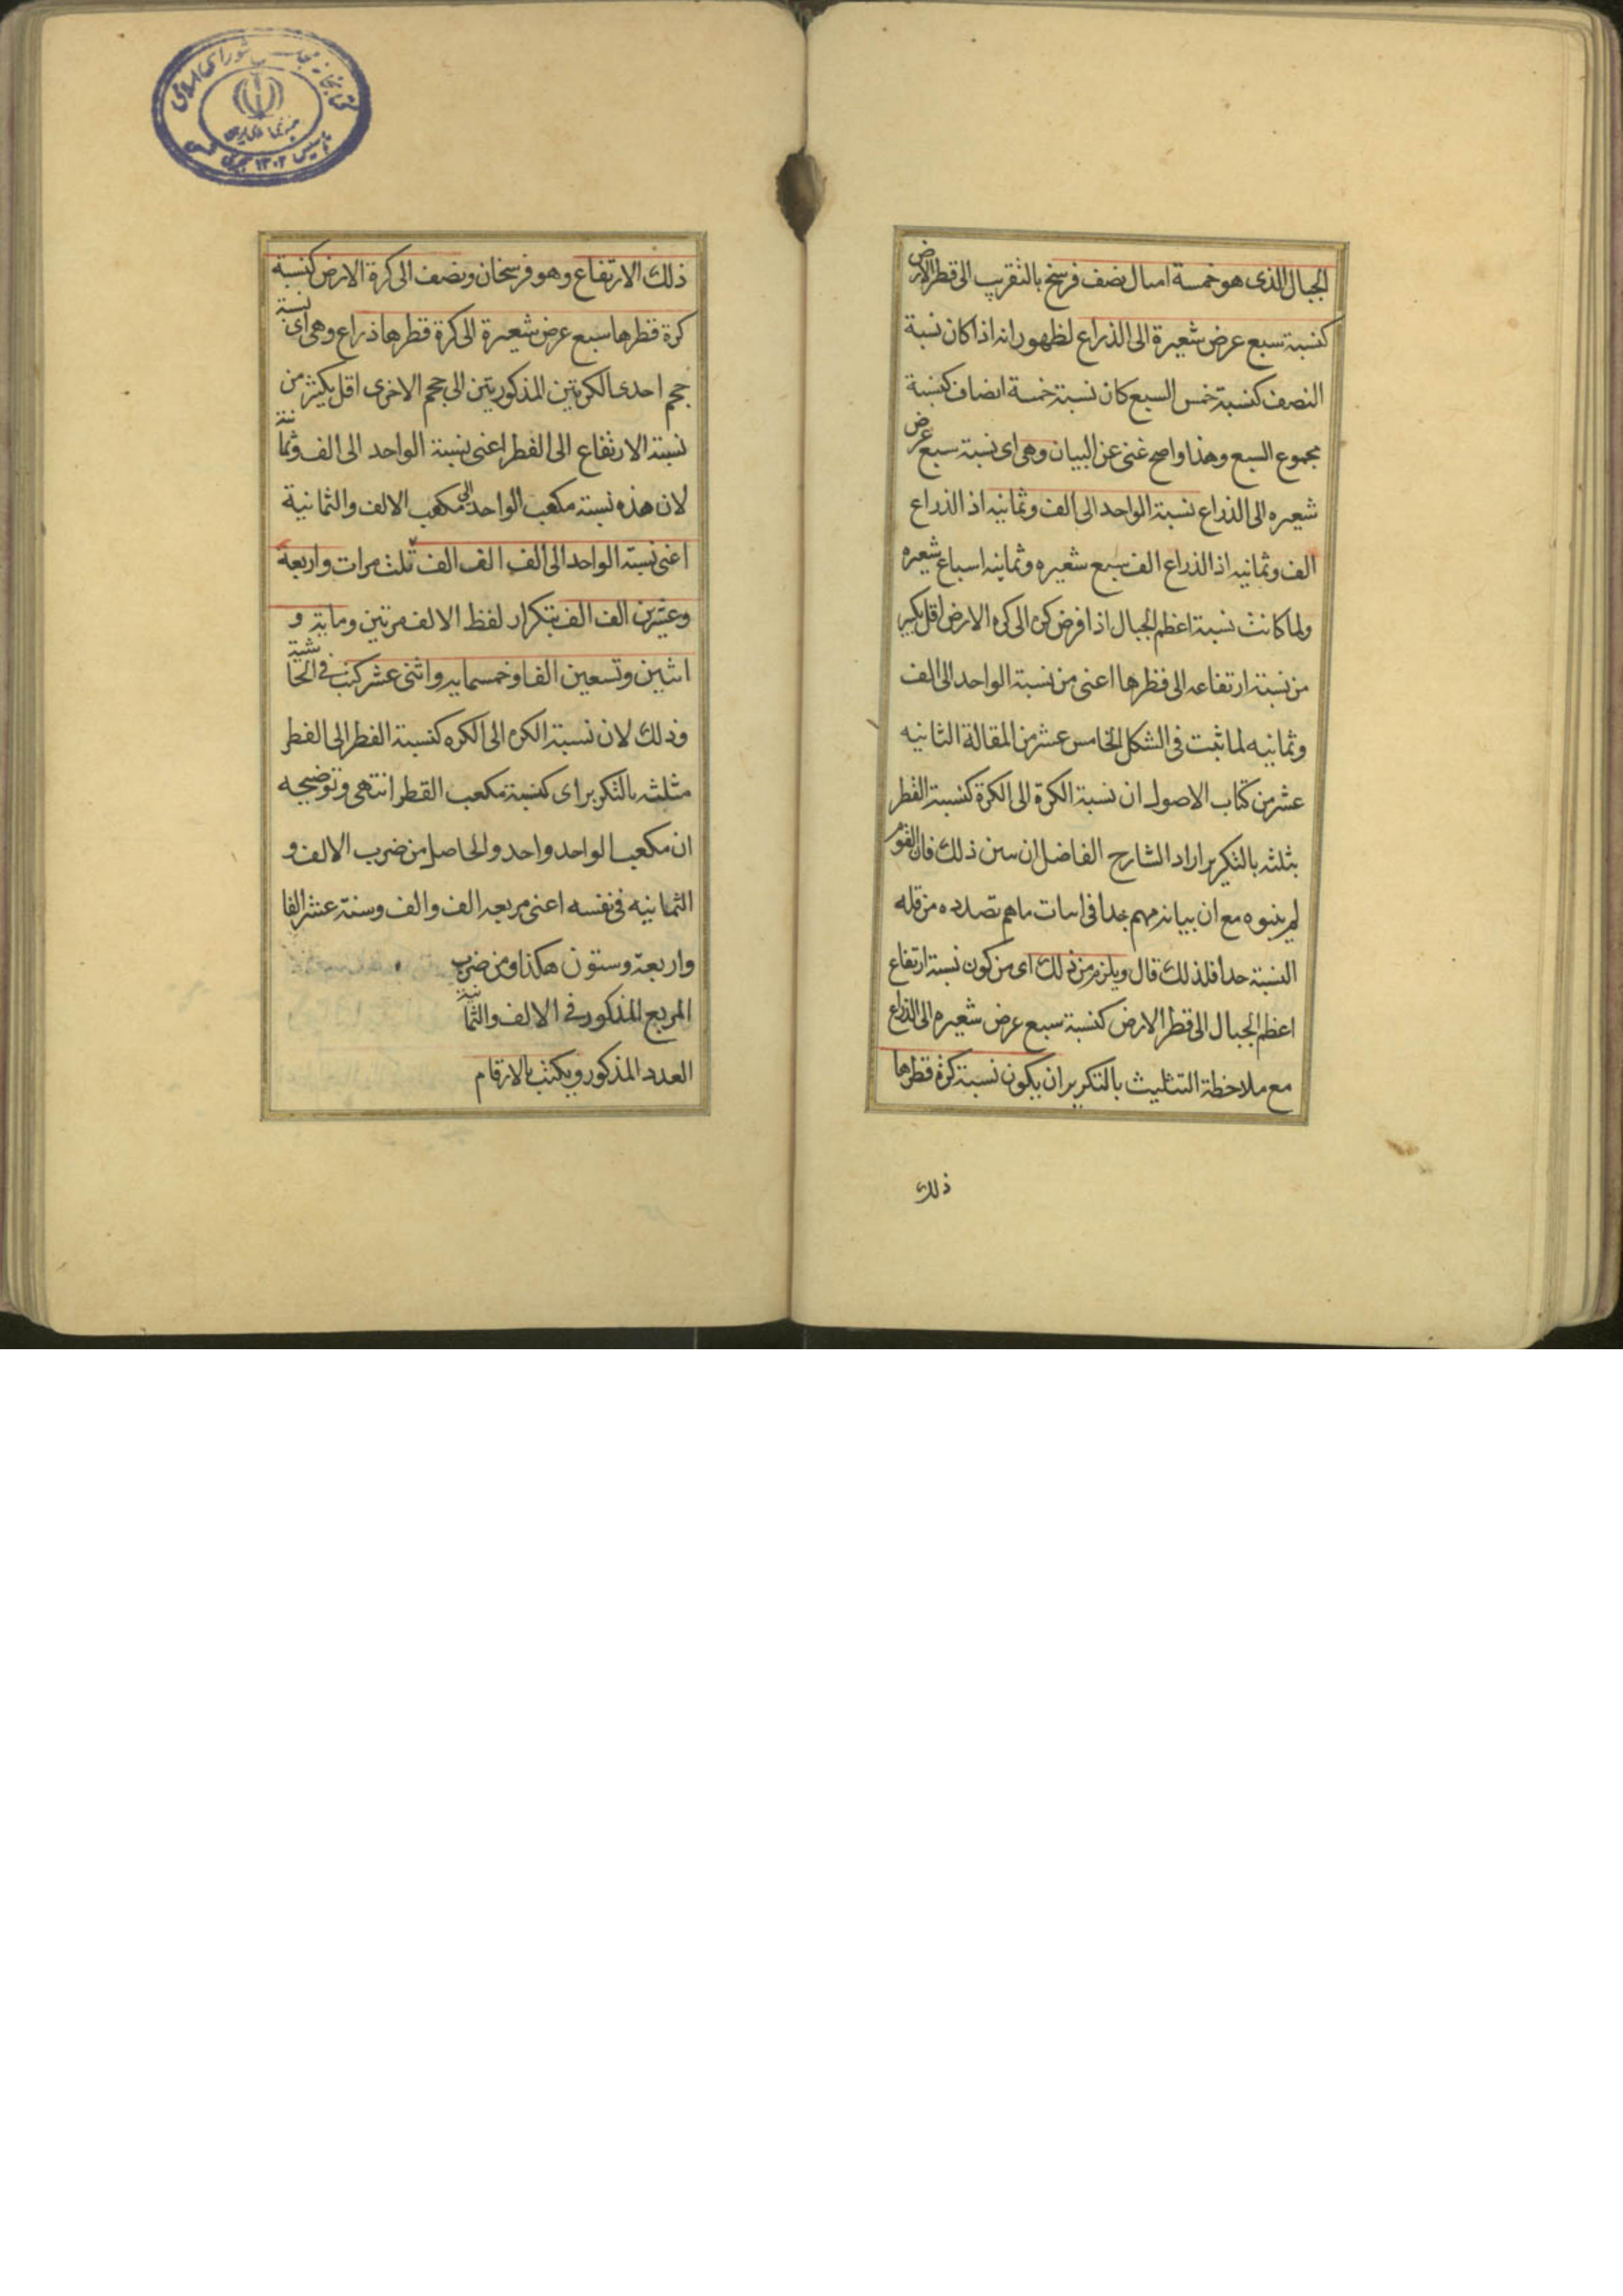 الجبال الذى هو خمسة امثال نصف فرسخ بالتقريب الى قطر الارض
كنسبة سبع عرض شعيرة الى الذراع لظهور انه اذا كان نسبة
النصف كنسبة خمس السبع كان نسبة خمسة انصاف كنسبة
مجموع السبع وهذا واضح غنى عن البيان وهى اى نسبة سبع عرض
شعيره الى الذراع نسبة الواحد الى الف وثمانيه اذ الذراع
الف وثمانيه اذ الذراع الف سبع شعيره وثمانيه اسباع شعيره
ولما كانت نسبة اعظم الجبال اذا فرض كره الى كره الارض اقل بكثير
من نسبة ارتفاعه الى قطرها اعنى من نسبة الواحد الى الف
وثمانيه لما ثبت فى الشكل الخامس عشر من المقالة الثانيه
عشر من كتاب الاصول ان نسبة الكرة الى الكرة كنسبة القطر
مثلثه بالتكرير اراد الشارح الفاضل ان يبين ذلك فان القوم
لم يبينوه مع ان بيانه مهم جدا فى اثبات ما هم بصدده من قلة
النسبة جدا فلذلك قال ويلزم من ذلك اى من كون نسبة ارتفاع
اعظم الجبال الى قطر الارض كنسبة سبع عرض شعيره الى الذراع
مع ملاحظة التثليث بالتكرير ان يكون نسبة كرة قطرها
ذلك
ذلك الارتفاع وهو فرسخان ونصف الى كرة الارض كنسبة
كرة قطرها سبع عرض شعيرة الى كرة قطرها ذراع وهى اى نسبة
حجم احدى الكرتين المذكورتين الى حجم الاخرى اقل بكثير من
نسبة الارتفاع الى القطر اعنى نسبة الواحد الى الف وثمانية
لان هذه نسبة مكعب الواحد الى مكعب الالف والثمانية
اعنى نسبة الواحد الى الف الف الف ثلث مرات واربعة
وعشرين الف الف بتكرار لفظ الالف مرتين ومايه و
اثنين وتسعين الفا وخمسمايه واثنى عشر كتب فى الحاشية
وذلك لان نسبة الكره الى الكره كنسبة القطر الى القطر
مثلثه بالتكرير اى كنسبة مكعب القطر انتهى وتوضيحه
ان مكعب الواحد واحد والحاصل من ضرب الالف و
الثمانيه فى نفسه اعنى مربعه الف الف وستة عشر الفا
واربعة وستون هكذا ومن ضرب
المربع المذكور فى الالف والثمانية
العدد المذكور ويكتب بالارقام